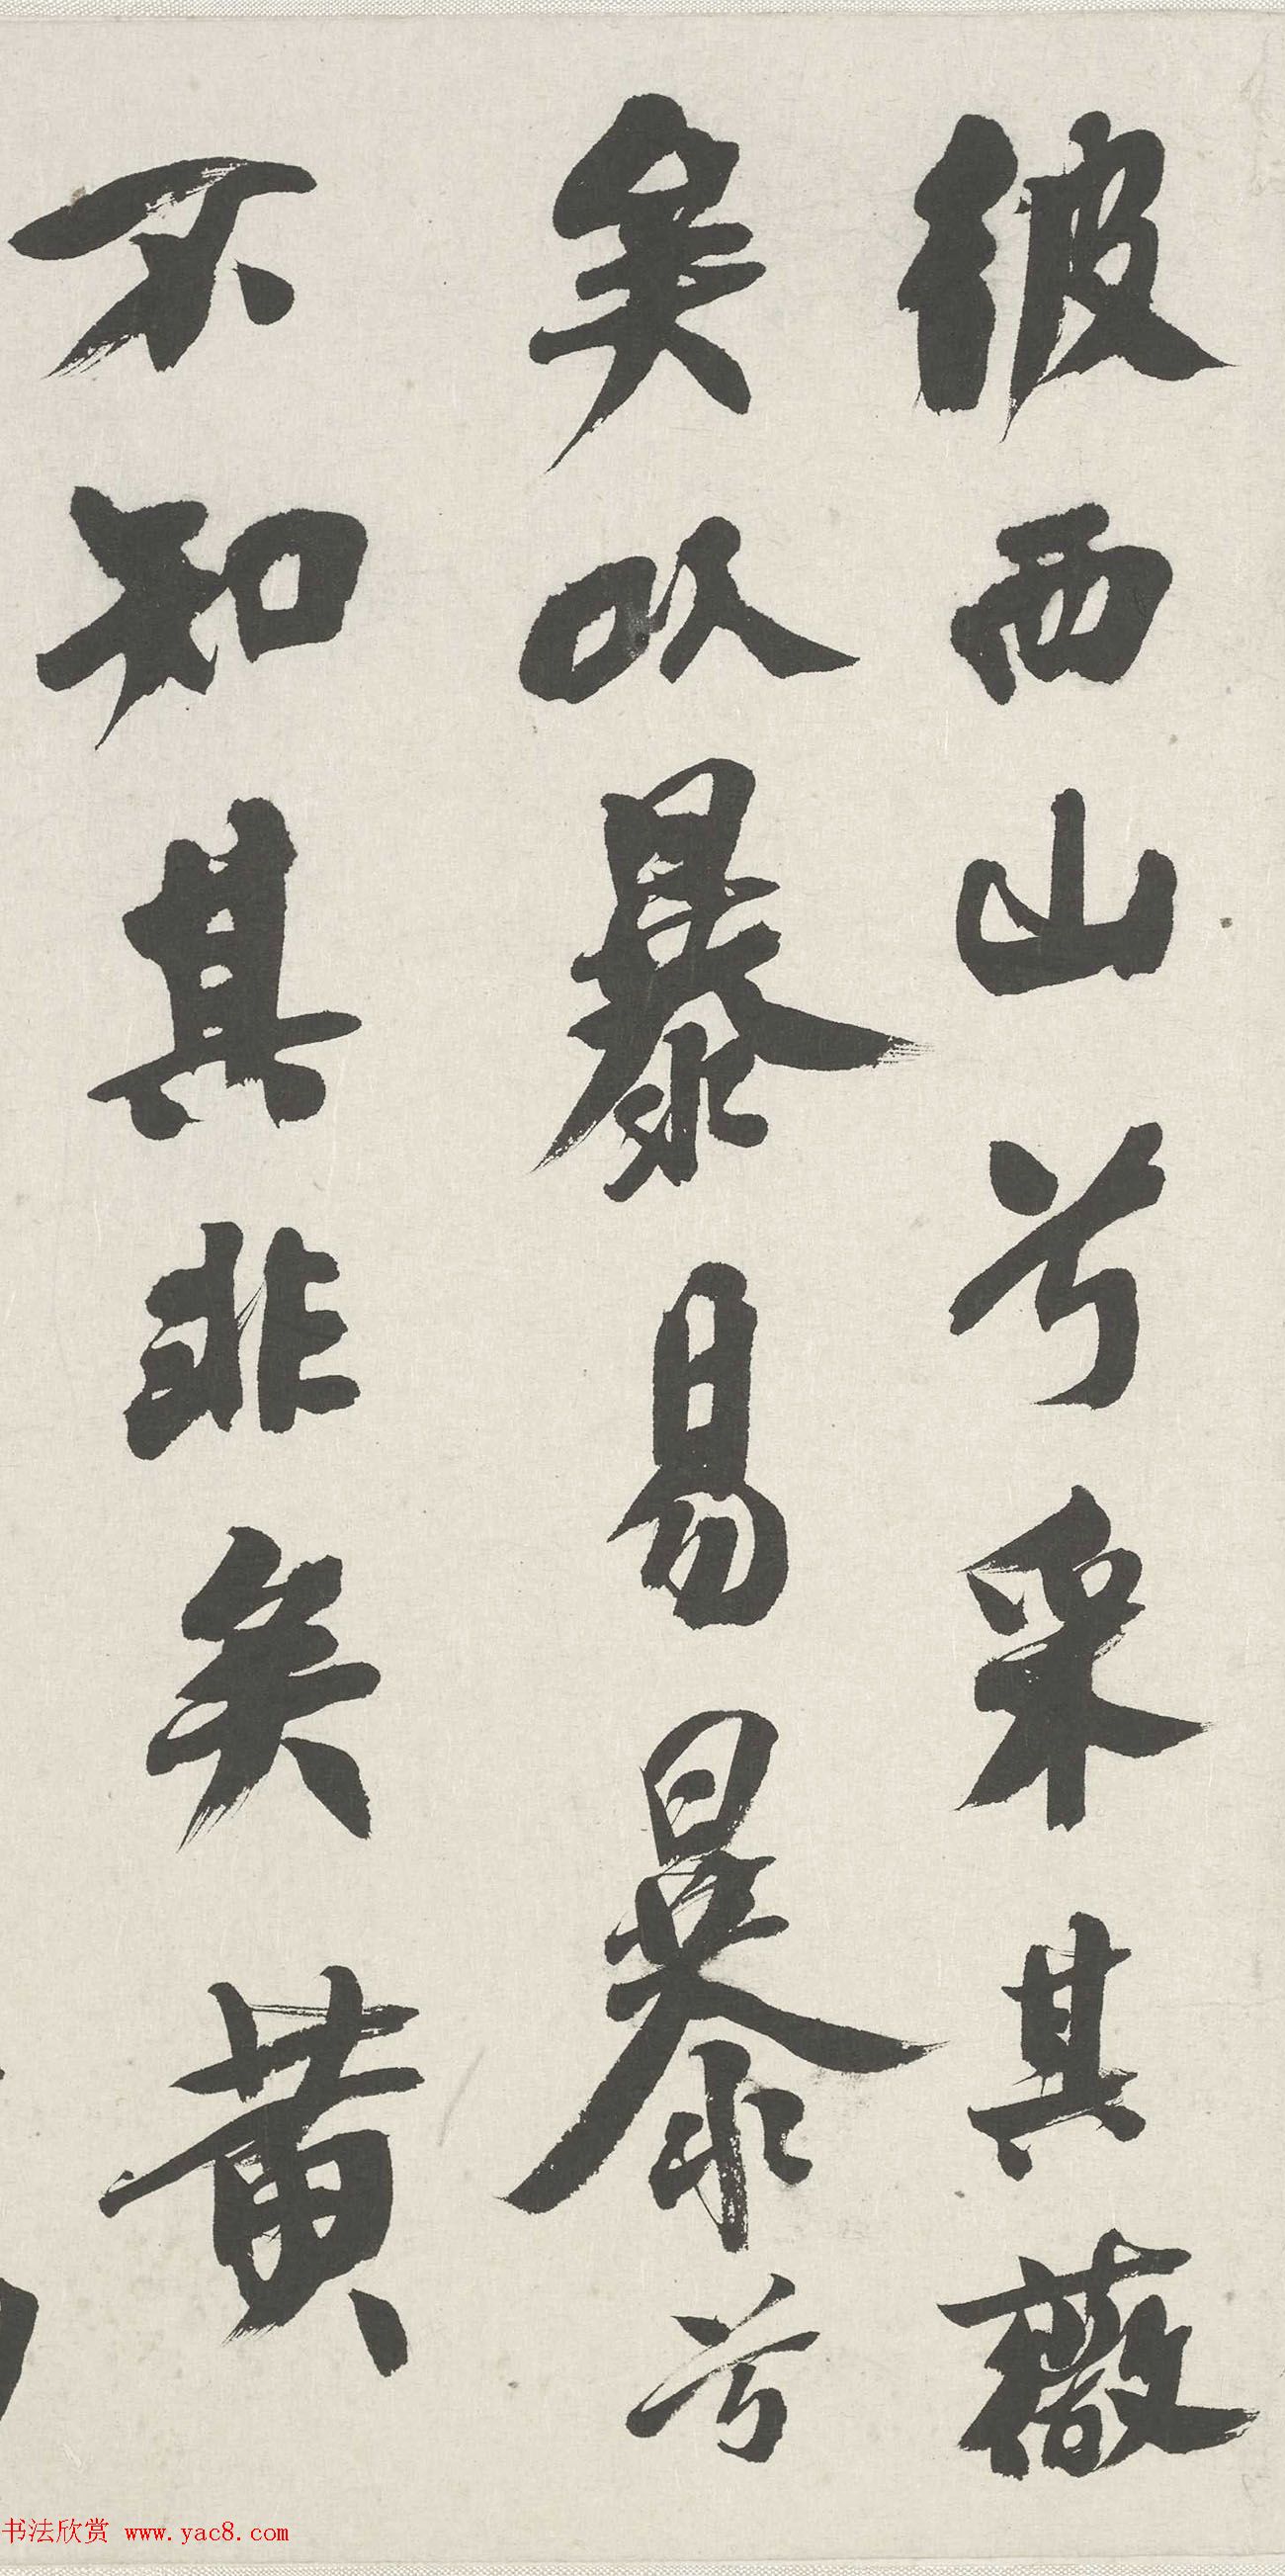 彼西山兮采其薇
矣以暴易暴兮
不知其非矣黄
书法欣赏 www.yac8.com